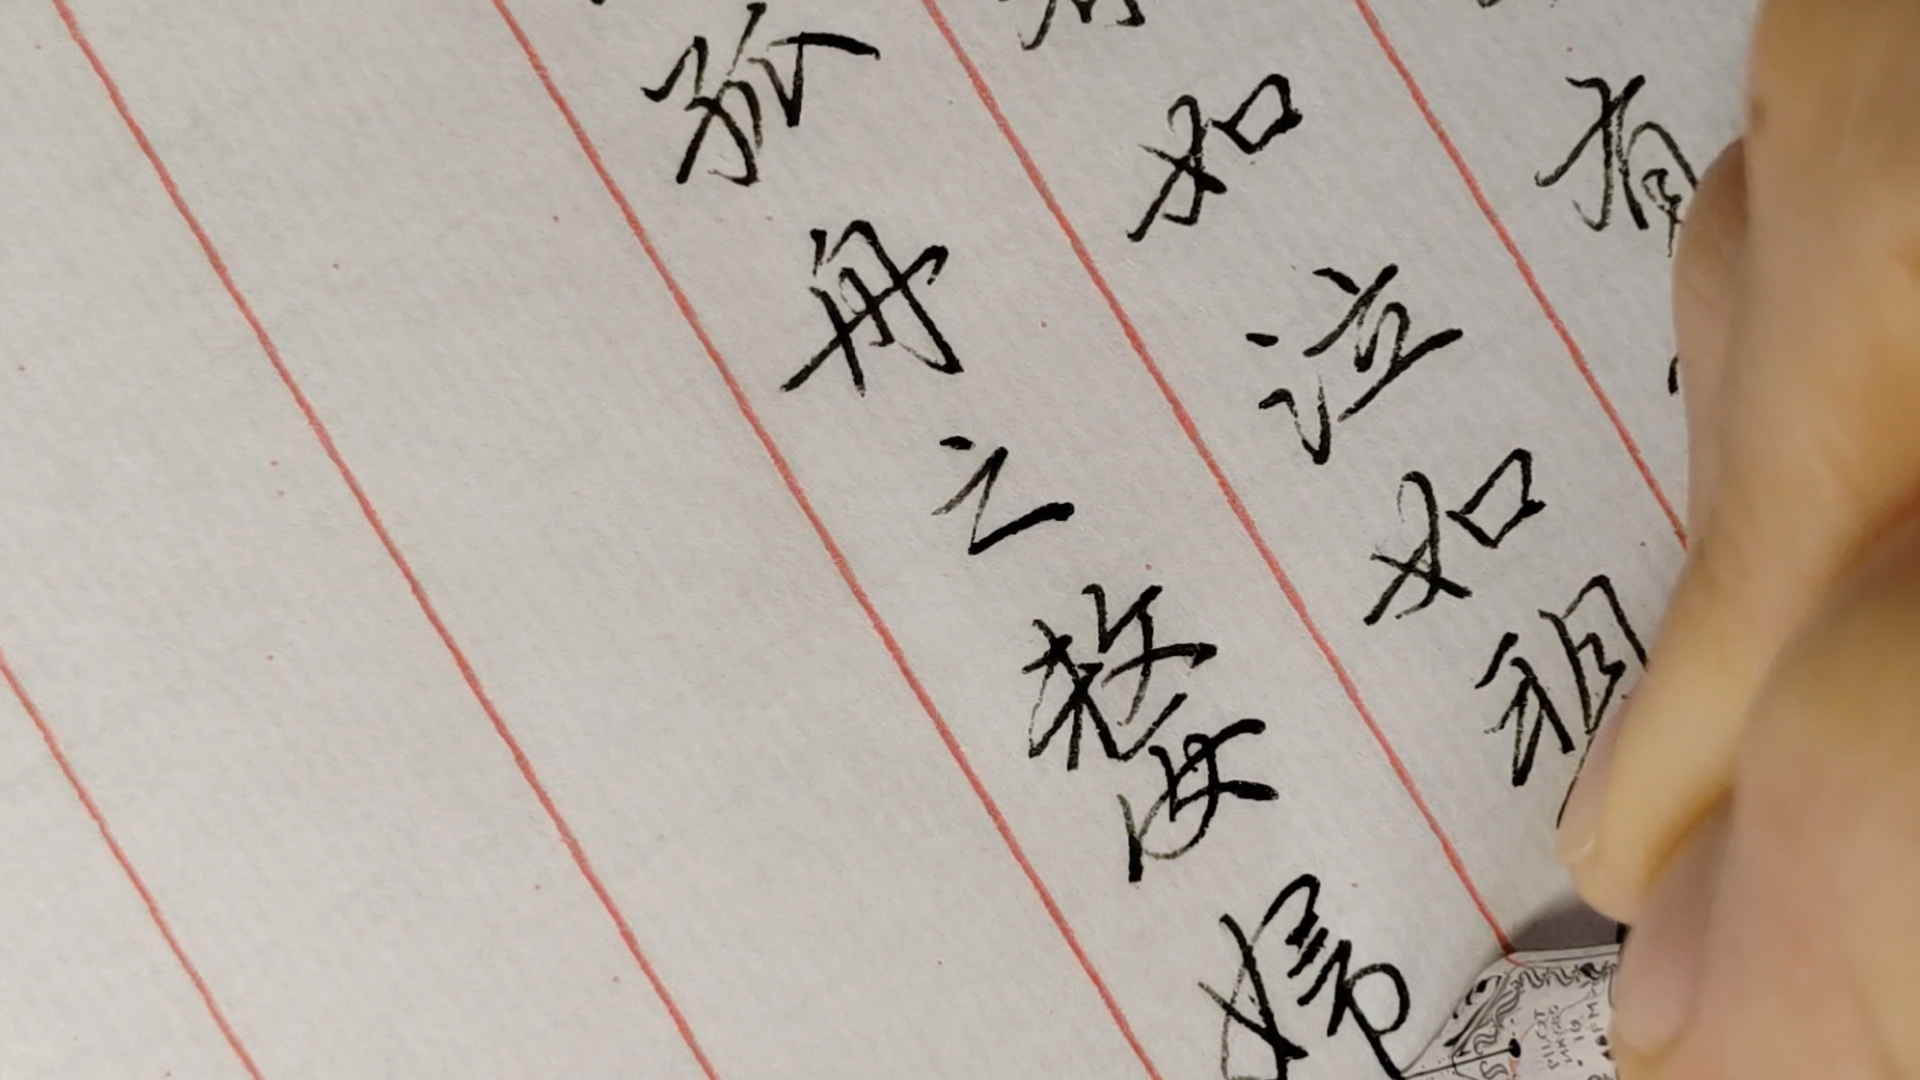 有
如泣如诉
孤舟之嫠妇